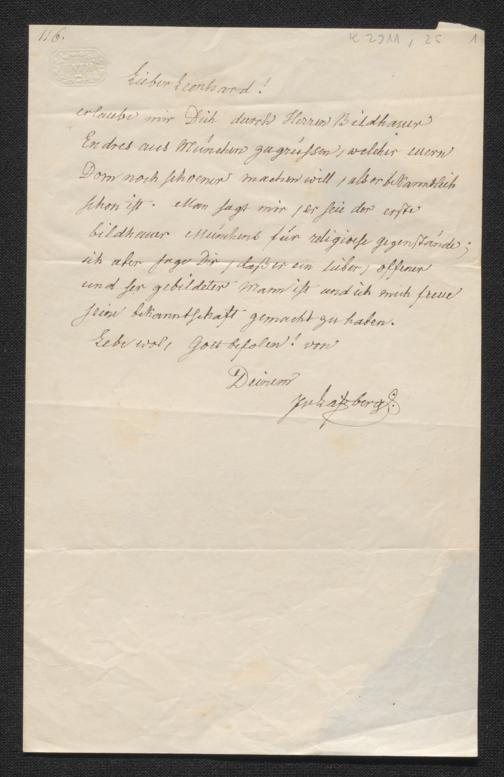 116.
K 2911, 25 1
Lieber Leonhard!
erlaube mir Dich durch Herrn Bildhauer
Endres aus München zu grüssen, welcher euern
Dom noch schoener machen will, als er bekanntlich
schon ist. Man sagt mir, er seie der erste
bildhauer Münchens für religioese gegenstände;
ich aber sage Dir, daß er ein lieber, offener
und ser gebildeter Mann ist und ich mich freue
seine bekanntschaft gemacht zu haben.
Lebe wol, Gott befolen! von
Deinem
JvLaßberg.